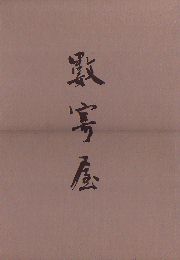 數寄屋